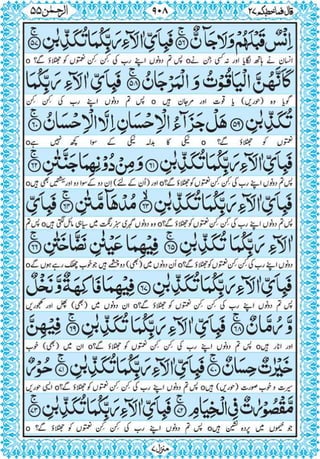 الرحمٰن ۵۵
۹۰۸
قال فماخطبکم ۲۷
اِنْسٌ قَبْلَهُمْ وَلَا جَآنٌّ ۟ۚ۵۶ فَبِاَیِّ اٰلَآءِ رَبِّكُمَا تُكَذِّبٰنِ ۟۵۷
انسان نے ہاتھ لگایا اور نہ کسی جن نے○ پس تم دونوں اپنے رب کی کِن کِن نعمتوں کو جھٹلاؤ گے؟ ○
كَاَنَّهُنَّ الْیَاقُوْتُ وَ الْمَرْجَانُ ۟ۚ۵۸ فَبِاَیِّ اٰلَآءِ رَبِّكُمَا
گویا وہ (حوریں) یاقوت اور مرجان ہیں ○ پس تم دونوں اپنے رب کی کِن کِن
تُكَذِّبٰنِ ۟۵۹ هَلْ جَزَآءُ الْاِحْسَانِ اِلَّا الْاِحْسَانُ ۟ۚ۶۰
نعمتوں کو جھٹلاؤ گے؟ ○ نیکی کا بدلہ نیکی کے سوا کچھ نہیں ہے○
فَبِاَیِّ اٰلَآءِ رَبِّكُمَا تُكَذِّبٰنِ ۟۶۱ وَ مِنْ دُوْنِهِمَا جَنَّتٰنِ ۟ۚ۶۲
پس تم دونوں اپنے رب کی کِن کِن نعمتوں کو جھٹلاؤ گے؟○ اور (اُن کے لئے) اِن دو کے سوا دو اور بہشتیں بھی ہیں○
فَبِاَیِّ اٰلَآءِ رَبِّكُمَا تُكَذِّبٰنِ ۟ۙ۶۳ مُدْهَآمَّتٰنِ ۟ۚ۶۴ فَبِاَیِّ
پس تم دونوں اپنے رب کی کِن کِن نعمتوں کو جھٹلاؤ گے؟○ وہ دونوں گہری سبز رنگت میں سیاہی مائل لگتی ہیں○ پس تم
اٰلَآءِ رَبِّكُمَا تُكَذِّبٰنِ ۟ۚ۶۵ فِیْهِمَا عَیْنٰنِ نَضَّاخَتٰنِ ۟ۚ۶۶
دونوں اپنے رب کی کِن کِن نعمتوں کو جھٹلاؤ گے؟○ اُن دونوں میں (بھی) دو چشمے ہیں جو خوب چھلک رہے ہوں گے○
فَبِاَیِّ اٰلَآءِ رَبِّكُمَا تُكَذِّبٰنِ ۟۶۷ فِیْهِمَا فَاكِهَةٌ وَّ نَخْلٌ
پس تم دونوں اپنے رب کی کِن کِن نعمتوں کو جھٹلاؤ گے؟○ ان دونوں میں (بھی) پھل اور کھجوریں
وَّ رُمَّانٌ ۟ۚ۶۸ فَبِاَیِّ اٰلَآءِ رَبِّكُمَا تُكَذِّبٰنِ ۟ۚ۶۹ فِیْهِنَّ
اور انار ہیں○ پس تم دونوں اپنے رب کی کِن کِن نعمتوں کو جھٹلاؤ گے؟○ ان میں (بھی) خوب
خَیْرٰتٌ حِسَانٌ ۟ۚ۷۰ فَبِاَیِّ اٰلَآءِ رَبِّكُمَا تُكَذِّبٰنِ ۟ۚ۷۱ حُوْرٌ
سیرت و خوب صورت (حوریں) ہیں○ پس تم دونوں اپنے رب کی کِن کِن نعمتوں کو جھٹلاؤ گے؟○ ایسی حوریں
مَّقْصُوْرٰتٌ فِی الْخِیَامِ ۟ۚ۷۲ فَبِاَیِّ اٰلَآءِ رَبِّكُمَا تُكَذِّبٰنِ ۟ۚ۷۳
جو خیموں میں پردہ نشین ہیں○ پس تم دونوں اپنے رب کی کِن کِن نعمتوں کو جھٹلاؤ گے؟ ○
منزل ۷